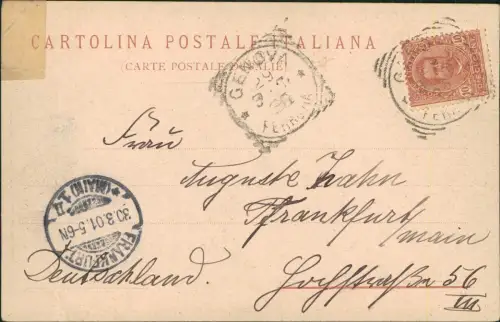 CARTOLINA POSTALE ITALIANA
(CARTE POSTALE D'ITALIE)
GENOVA
FERROVIA
Frau
Auguste Zahn
Frankfurt
/main
Deutschland.
Hochstraße 56
III
FRANKFURT
(MAIN)
30.8.01.5-6N